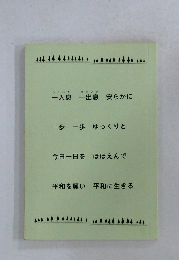 一入息 一出息 安らかに
一歩 一歩 ゆっくりと
今日一日を ほほえんで
平和を願い 平和に生きる